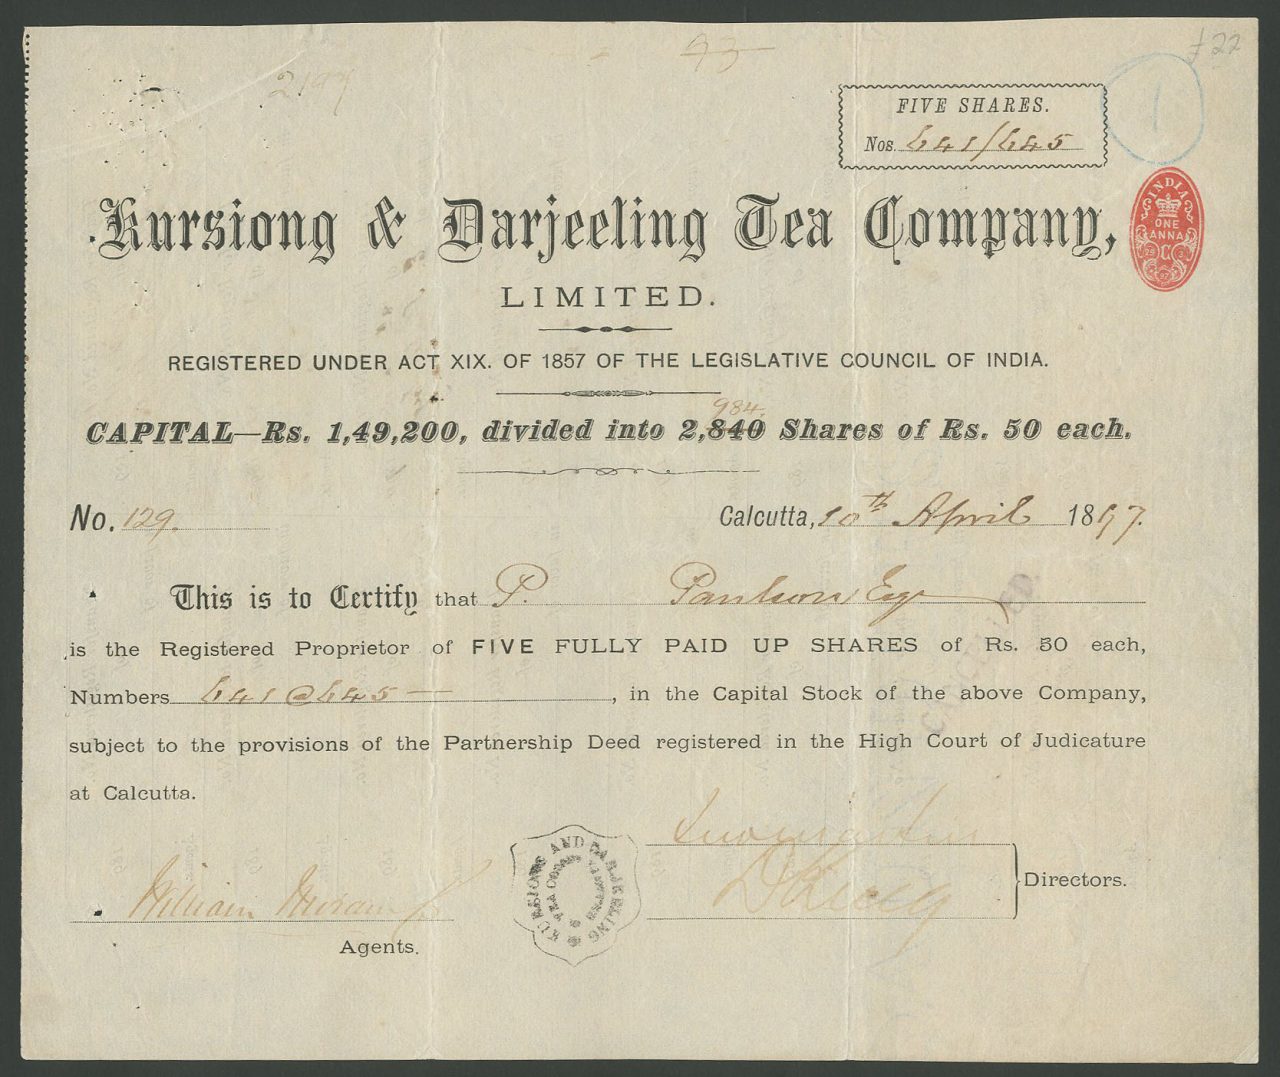 93
£22
2197
1
FIVE SHARES.
Nos. 641/645
Kursiong & Darjeeling Tea Company,
INDIA
ONE
ANNA
LIMITED.
REGISTERED UNDER ACT XIX. OF 1857 OF THE LEGISLATIVE COUNCIL OF INDIA.
984.
CAPITAL—Rs. 1,49,200, divided into 2,840 Shares of Rs. 50 each.
No. 129. Calcutta, 10th April 1897.
This is to Certify that P. Paulson Esqr
is the Registered Proprietor of FIVE FULLY PAID UP SHARES of Rs. 50 each,
Numbers 641@645—, in the Capital Stock of the above Company,
subject to the provisions of the Partnership Deed registered in the High Court of Judicature
at Calcutta.
CANCELLED.
KURSIONG AND DARJEELING
TEA COMPANY LIMITED
William
Directors.
Agents.